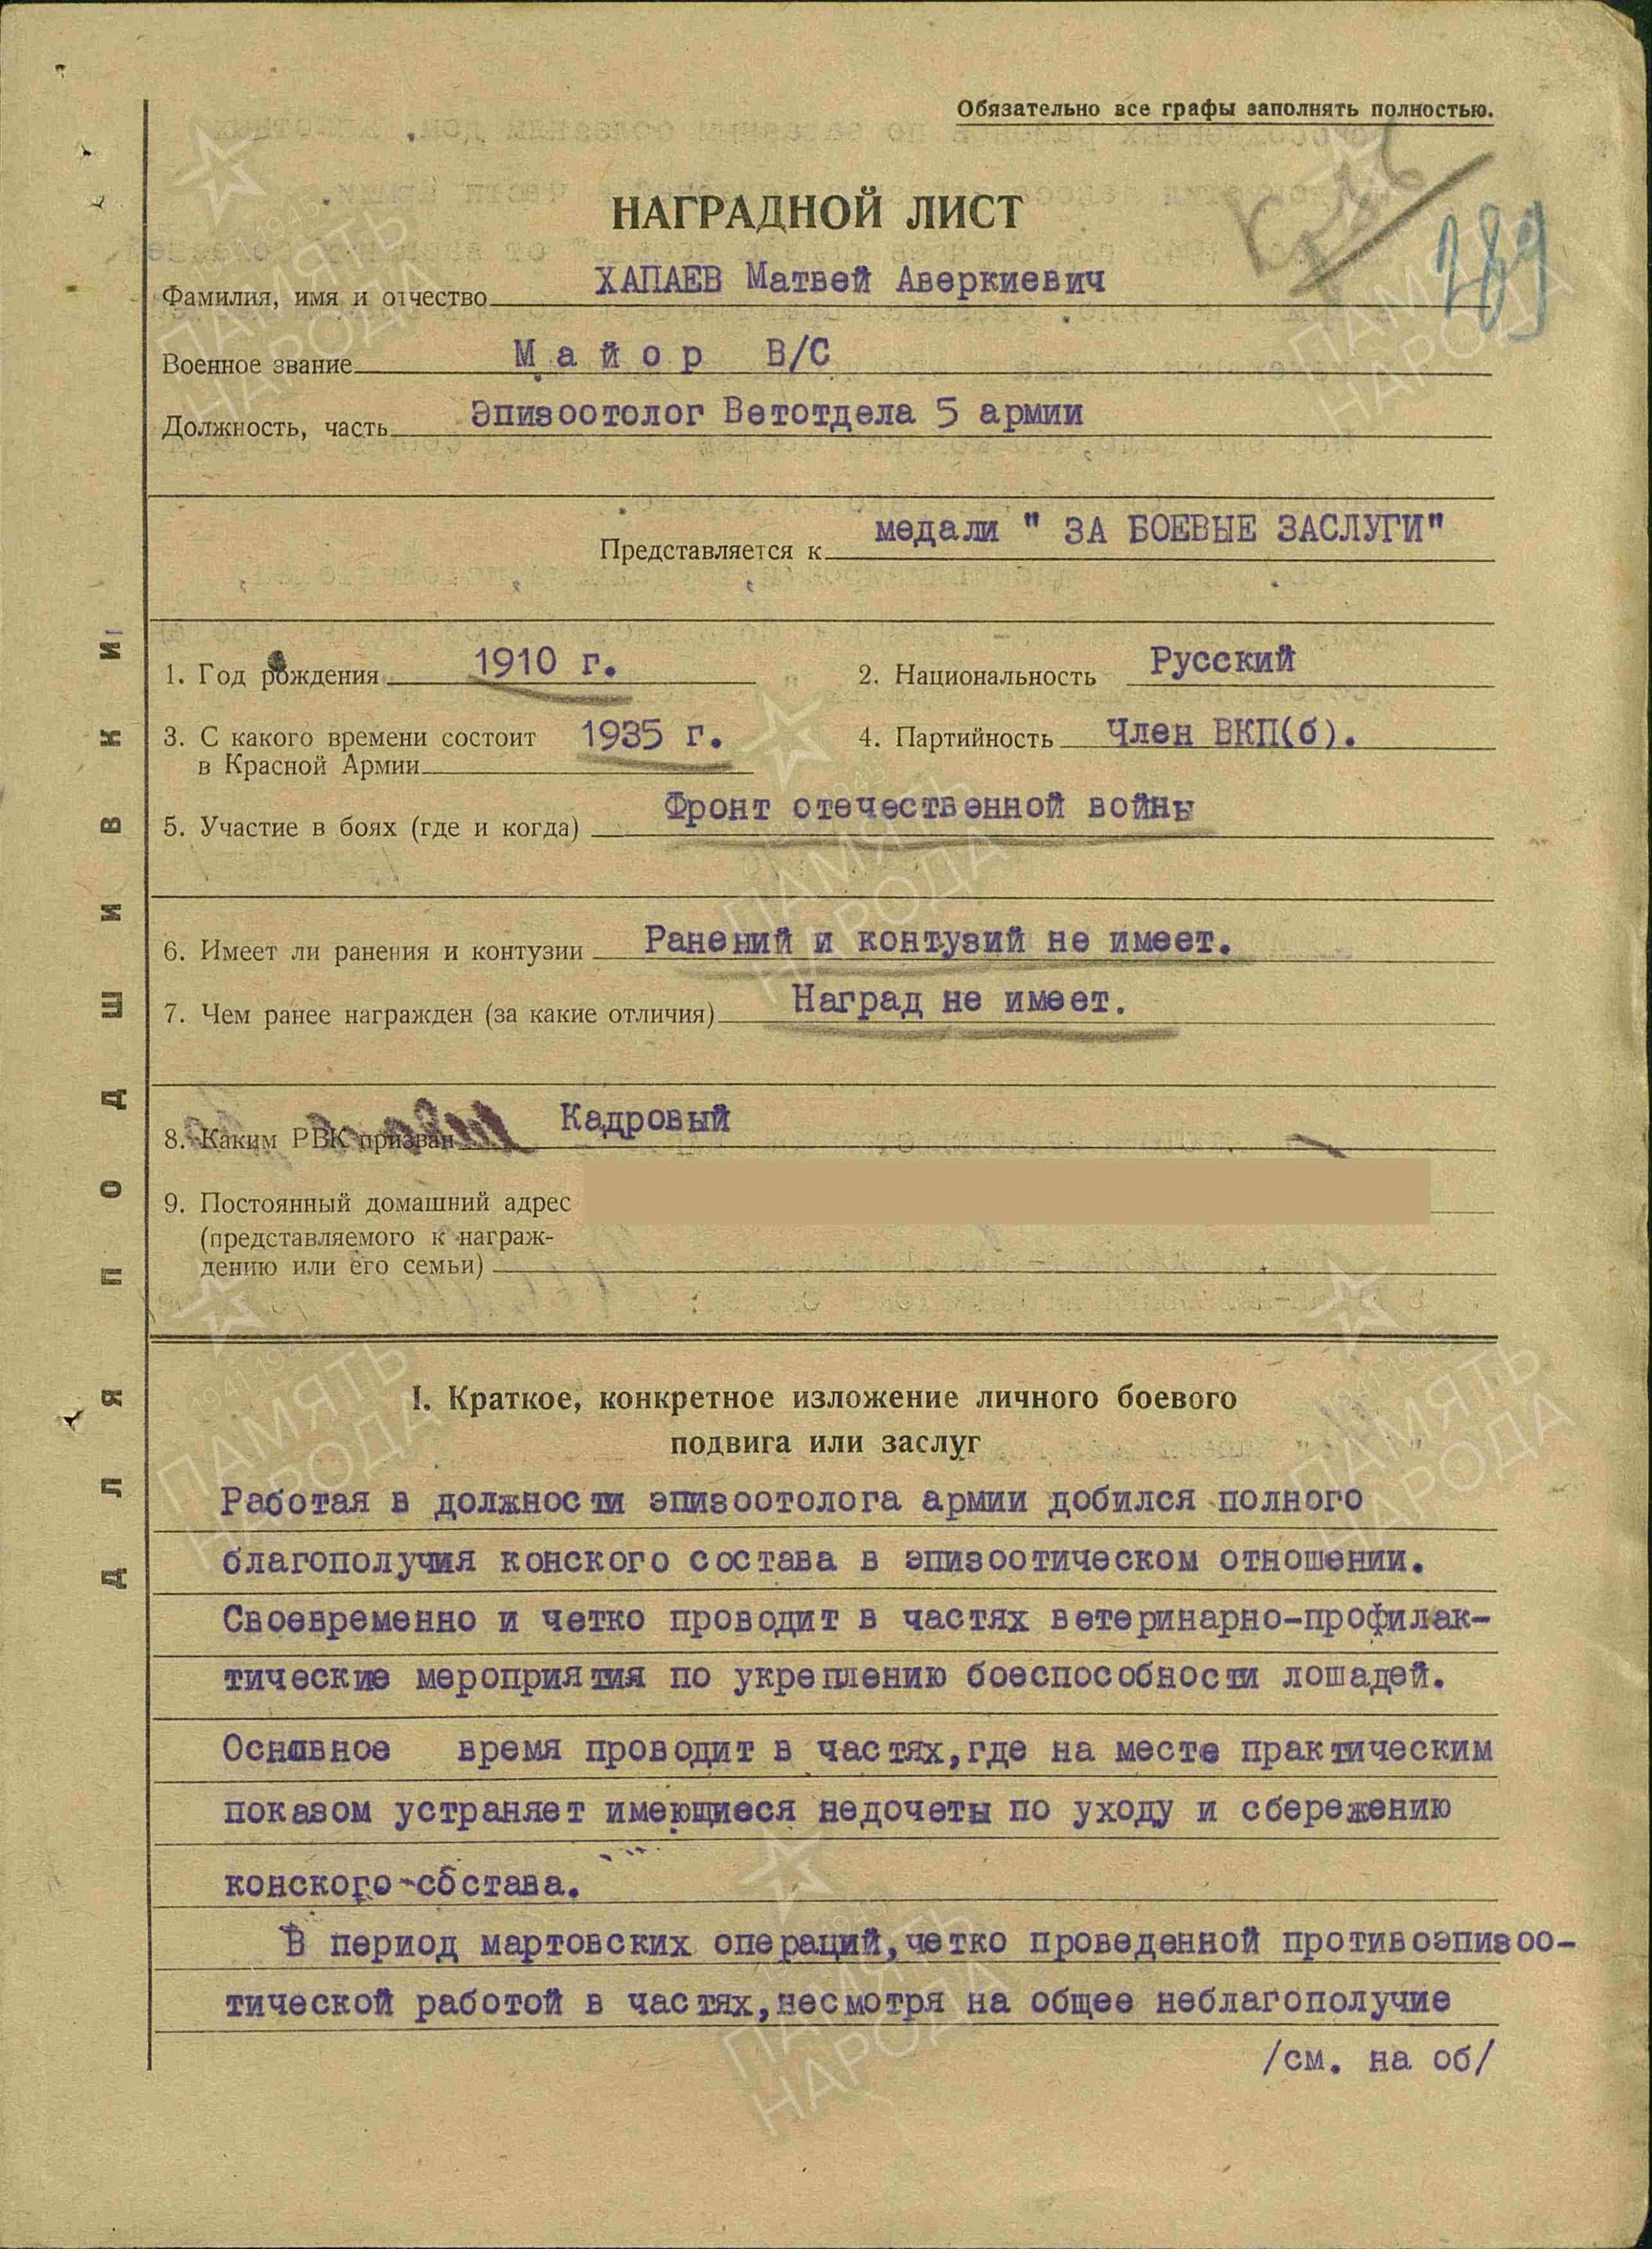 Обязательно все графы заполнять полностью.
НАГРАДНОЙ ЛИСТ
289
Фамилия, имя и отчество ХАПАЕВ Матвей Аверкиевич
Военное звание Майор В/С
Должность, часть Эпизоотолог Ветотдела 5 армии
Представляется к медали " ЗА БОЕВЫЕ ЗАСЛУГИ"
1. Год рождения 1910 г. 2. Национальность Русский
3. С какого времени состоит 1935 г. 4. Партийность Член ВКП(б).
в Красной Армии
5. Участие в боях (где и когда) Фронт отечественной войны
6. Имеет ли ранения и контузии Ранений и контузий не имеет.
7. Чем ранее награжден (за какие отличия) Наград не имеет.
8. Каким РВК призван Кадровый
9. Постоянный домашний адрес
(представляемого к награж-
дению или его семьи)
ДЛЯ ПОДШИВКИ
I. Краткое, конкретное изложение личного боевого
подвига или заслуг
Работая в должности эпизоотолога армии добился полного
благополучия конского состава в эпизоотическом отношении.
Своевременно и четко проводит в частях ветеринарно-профилак-
тические мероприятия по укреплению боеспособности лошадей.
Основное время проводит в частях,где на месте практическим
показом устраняет имеющиеся недочеты по уходу и сбережению
конского состава.
В период мартовских операций,четко проведенной противоэпизоо-
тической работой в частях,несмотря на общее неблагополучие
/см. на об/
ПАМЯТЬ
НАРОДА
1941-1945